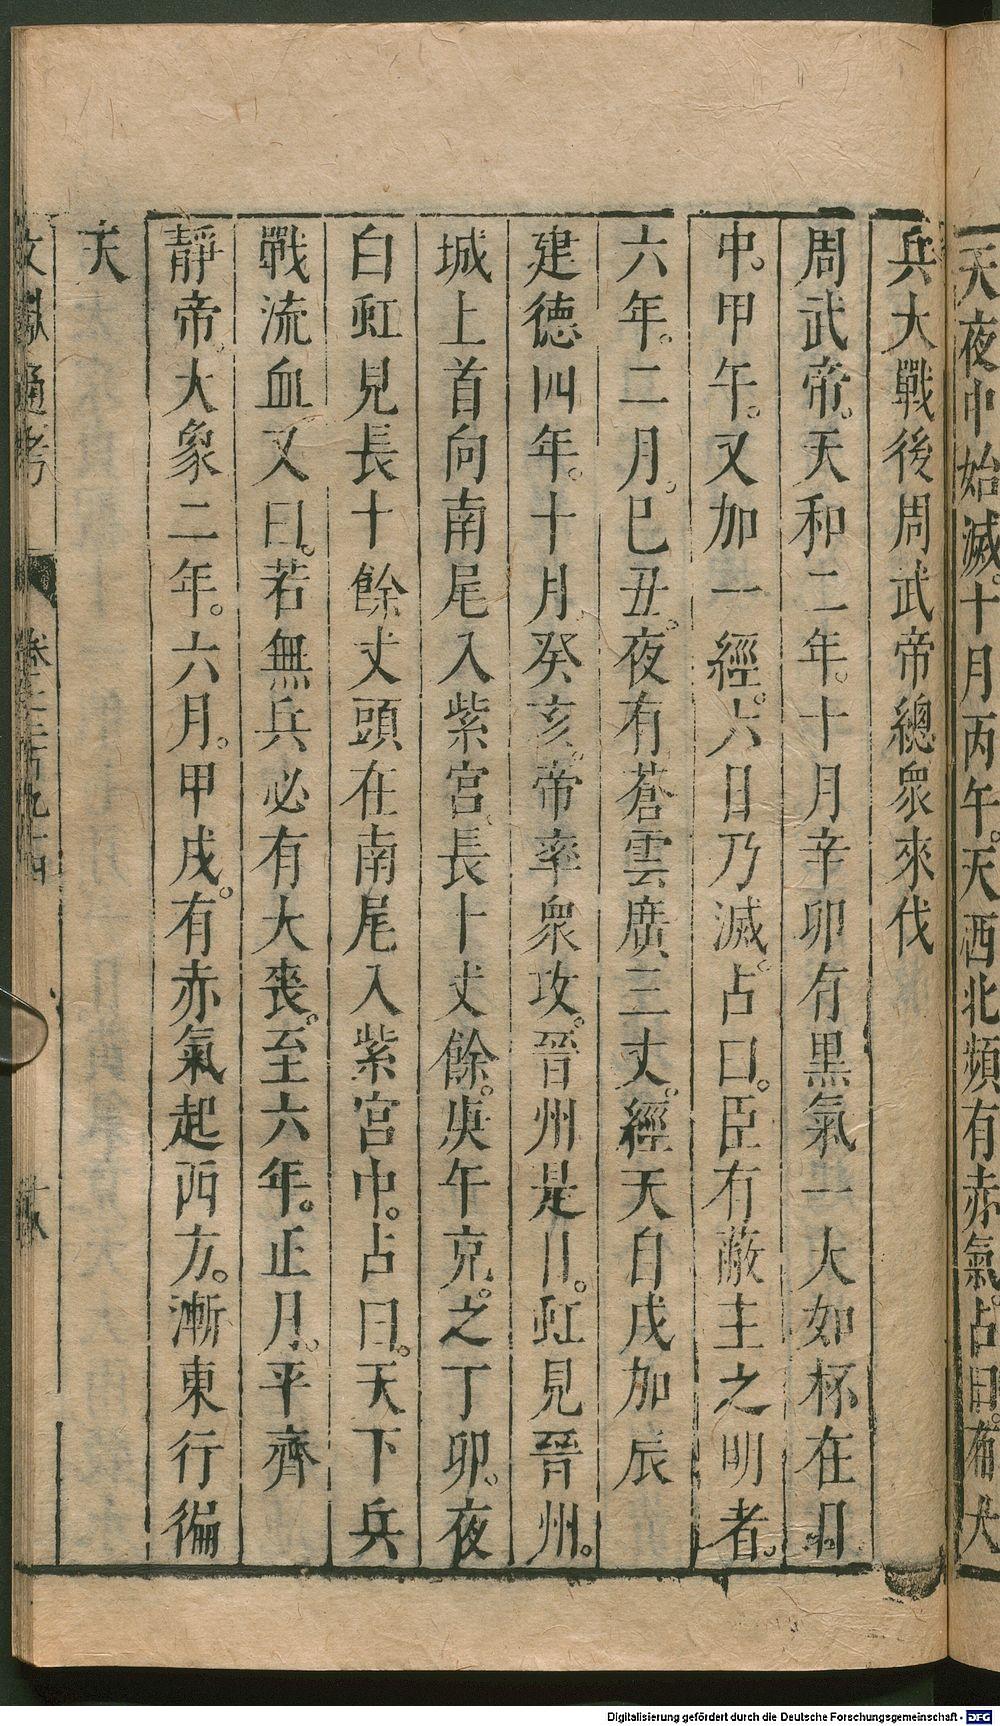 天夜中始滅。十月丙午。天西北頻有赤氣。占曰。有大
兵大戰後周武帝總衆來伐
周武帝。天和二年。十月辛卯有黑氣一大如杯在日
中。甲午。又加一經。六日乃滅。占曰。臣有蔽主之明者。
六年。二月。巳丑。夜有蒼雲廣三丈。經天自戌加辰
建德四年。十月癸亥。帝率衆攻。晉州是日。虹見晉州。
城上首向南尾入紫宮。長十丈餘。庚午克。之丁卯。夜
白虹見長十餘丈頭在南尾入紫宮中。占曰。天下兵
戰流血又曰。若無兵必有大喪。至六年。正月。平齊
靜帝。大象二年。六月。甲戌。有赤氣起西方。漸東行徧
天
文獻通考
卷之二百九十四
Digitalisierung gefördert durch die Deutsche Forschungsgemeinschaft - DFG